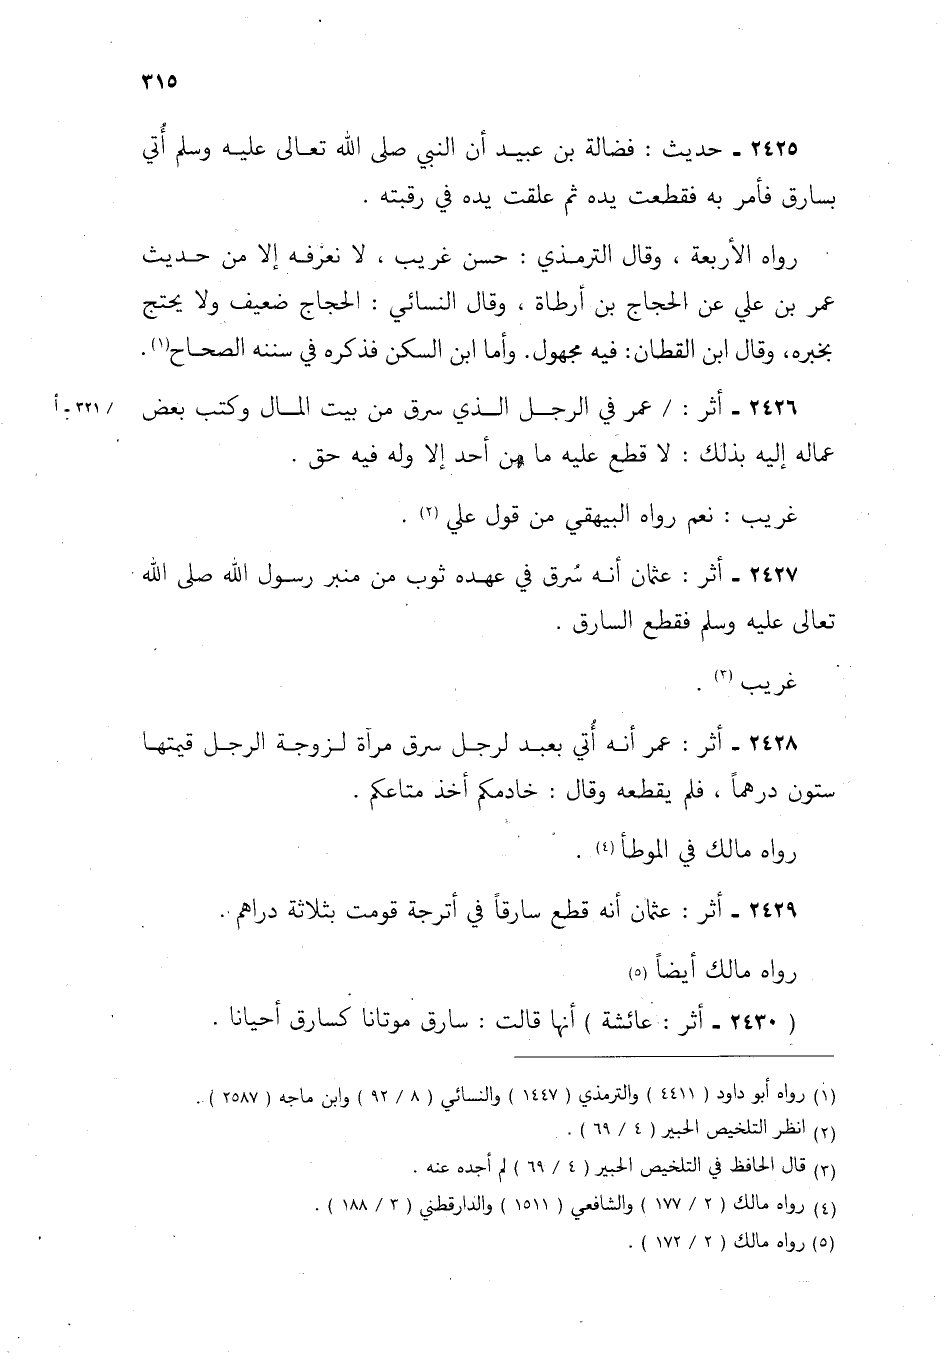 ٣١٥
٢٤٢٥ ـ حديث : فضالة بن عبيد أن النبي صلى الله تعالى عليه وسلم أُتي
بسارق فأمر به فقطعت يده ثم علقت يده في رقبته .
رواه الأربعة ، وقال الترمذي : حسن غريب ، لا نعرفه إلا من حديث
عمر بن علي عن الحجاج بن أرطاة ، وقال النسائي : الحجاج ضعيف ولا يحتج
بخبره، وقال ابن القطان: فيه مجهول. وأما ابن السكن فذكره في سننه الصحاح(١).
٢٤٢٦ ـ أثر : / عمر في الرجل الذي سرق من بيت المال وكتب بعض / ٣٢١ ـ أ
عماله إليه بذلك : لا قطع عليه ما من أحد إلا وله فيه حق .
غريب : نعم رواه البيهقي من قول علي (٢) .
٢٤٢٧ ـ أثر : عثمان أنه سُرق في عهده ثوب من منبر رسول الله صلى الله
تعالى عليه وسلم فقطع السارق .
غريب (٣) .
٢٤٢٨ ـ أثر : عمر أنه أُتي بعبد لرجل سرق مرآة لزوجة الرجل قيمتها
ستون درهماً ، فلم يقطعه وقال : خادمكم أخذ متاعكم .
رواه مالك في الموطأ (٤) .
٢٤٢٩ ـ أثر : عثمان أنه قطع سارقاً في أترجة قومت بثلاثة دراهم .
رواه مالك أيضاً (٥)
( ٢٤٣٠ ـ أثر : عائشة ) أنها قالت : سارق موتانا كسارق أحيانا .
(١) رواه أبو داود ( ٤٤١١ ) والترمذي ( ١٤٤٧ ) والنسائي ( ٨ / ٩٢ ) وابن ماجه ( ٢٥٨٧ ) .
(٢) انظر التلخيص الحبير ( ٤ / ٦٩ ) .
(٣) قال الحافظ في التلخيص الحبير ( ٤ / ٦٩ ) لم أجده عنه .
(٤) رواه مالك ( ٢ / ١٧٧ ) والشافعي ( ١٥١١ ) والدارقطني ( ٣ / ١٨٨ ) .
(٥) رواه مالك ( ٢ / ١٧٢ ) .